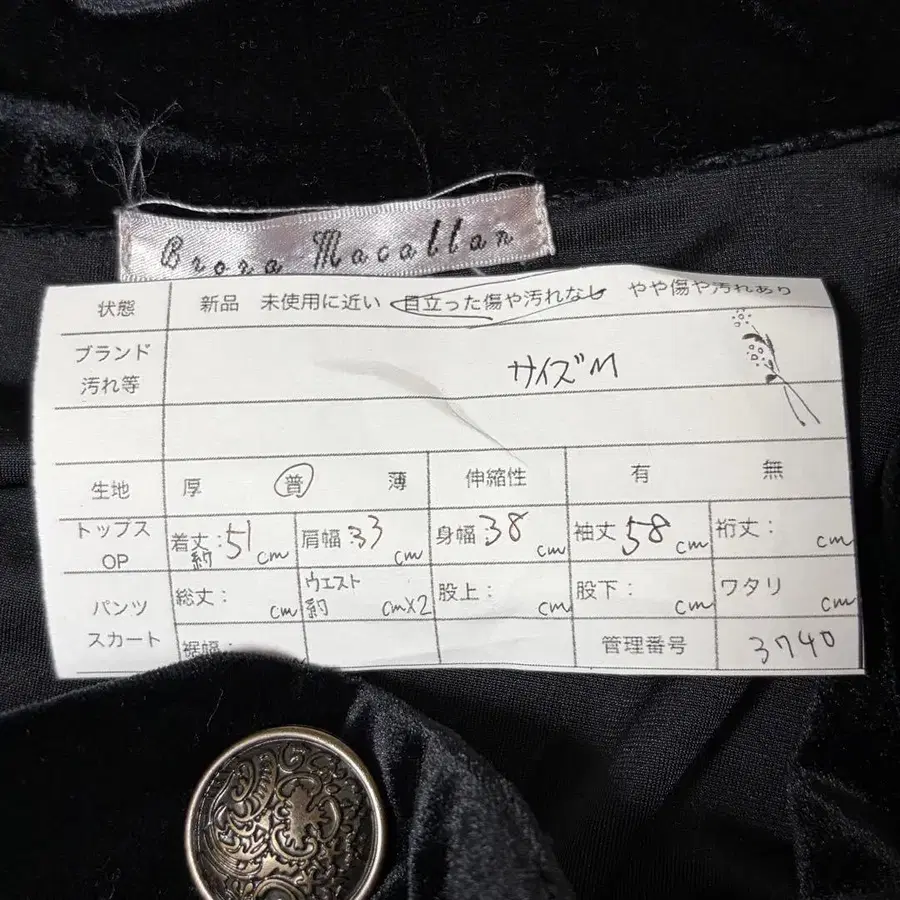 Brora Macallan
状態 新品 未使用に近い 目立った傷や汚れなし やや傷や汚れあり
ブランド
汚れ等
サイズM
生地 厚 普 薄 伸縮性 有 無
トップス
OP
着丈:約51cm 肩幅:33cm 身幅:38cm 袖丈58cm 裄丈:cm
パンツ
スカート
総丈:cm ウエスト約cm×2 股上:cm 股下:cm ワタリcm
裾幅: 管理番号 3740